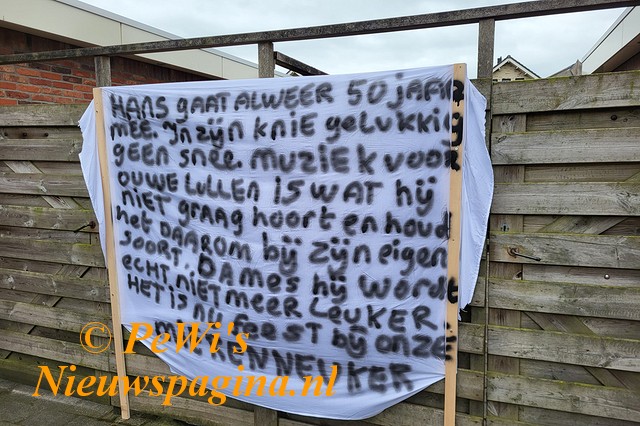 HANS gAAT ALWEER 50 jAAR
MEE. IN ZIJN KNIE gELUKKIg
gEEN SNEE. MUZIEK VOOR
OUWE LULLEN IS WAT HIJ
NIET gRAAG hOORT EN hOUD
hET DAAROM BIJ ZIJN EIgEN
SOORT. DAMES hIJ WORDT
ECHT NIET MEER LEUKER
HET IS NU FEEST BIJ ONZE
© PeWi's
Nieuwspagina.nl